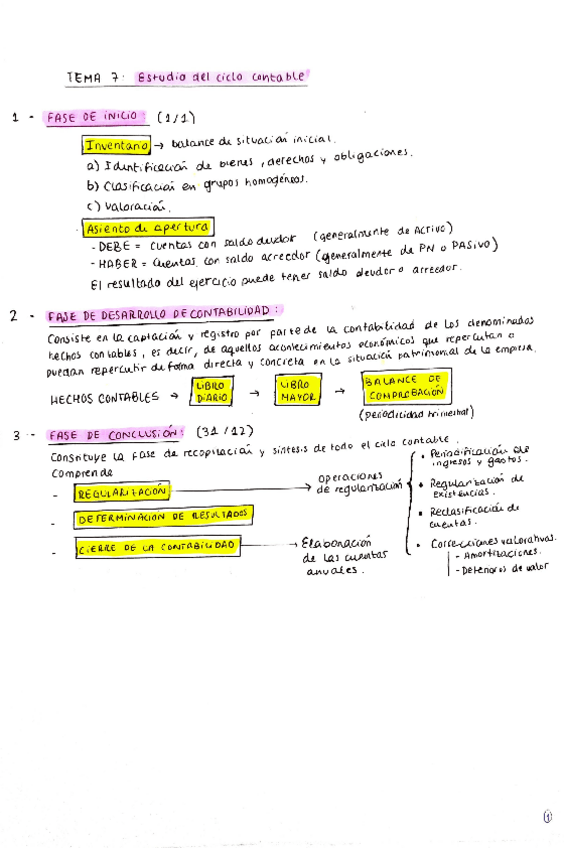 TEMA 7: Estudio del ciclo contable
1 - FASE DE INICIO: (1/1)
Inventario → balance de situación inicial.
a) Identificación de bienes, derechos y obligaciones.
b) Clasificación en grupos homogéneos.
c) Valoración.
Asiento de apertura
- DEBE = cuentas con saldo deudor (generalmente de ACTIVO)
- HABER = cuentas con saldo acreedor (generalmente de PN o PASIVO)
El resultado del ejercicio puede tener saldo deudor o acreedor.
2 - FASE DE DESARROLLO DE CONTABILIDAD:
Consiste en la captación y registro por parte de la contabilidad de los denominados
hechos contables, es decir, de aquellos acontecimientos económicos que repercutan o
puedan repercutir de forma directa y concreta en la situación patrimonial de la empresa.
HECHOS CONTABLES → LIBRO DIARIO → LIBRO MAYOR → BALANCE DE COMPROBACIÓN
(periodicidad trimestral)
3 - FASE DE CONCLUSIÓN: (31/12)
Consituye la fase de recopilación y síntesis de todo el ciclo contable.
Comprende
- REGULARIZACIÓN → operaciones de regularización
• Periodificación de ingresos y gastos.
• Regularización de existencias.
• Reclasificación de cuentas.
• Correcciones valorativas.
- Amortizaciones.
- Deterioros de valor
- DETERMINACIÓN DE RESULTADOS
- CIERRE DE LA CONTABILIDAD → Elaboración de las cuentas anuales.
1